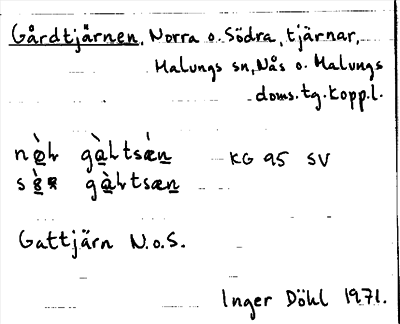 Gårdtjärnen, Norra o. Södra, tjärnar,
Malungs sn, Nås o. Malungs
doms.tg. Kopp.l.
KG 95 SV
Gattjärn N.o.S.
Inger Döhl 1971.